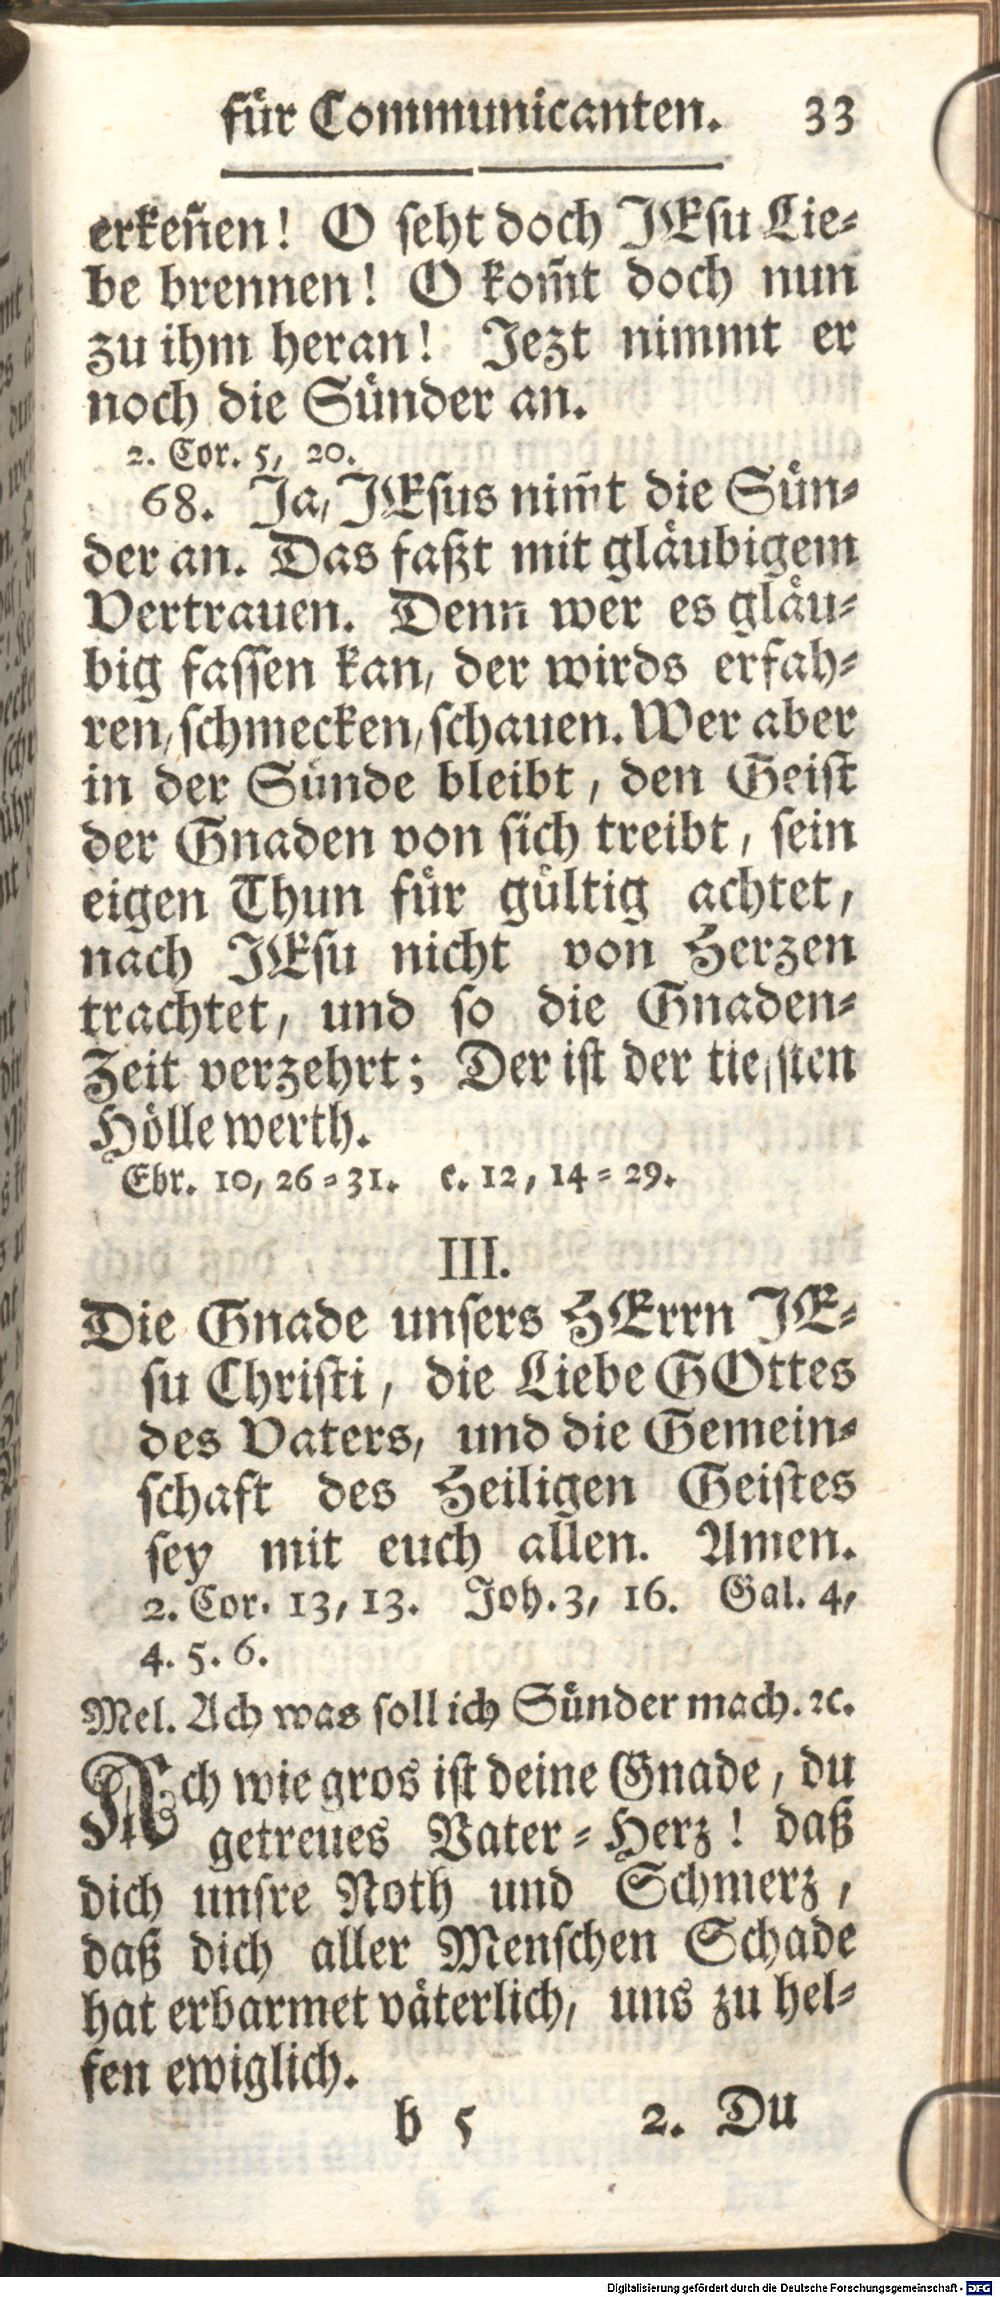 für Communicanten. 33
erkeñen! O seht doch JEsu Lie-
be brennen! O kom̃t doch nun
zu ihm heran! Jezt nimmt er
noch die Sünder an.
2. Cor. 5, 20.
68. Ja, JEsus nim̃t die Sün-
der an. Das faßt mit gläubigem
Vertrauen. Denn wer es gläu-
big fassen kan, der wirds erfah-
ren, schmecken, schauen. Wer aber
in der Sünde bleibt, den Geist
der Gnaden von sich treibt, sein
eigen Thun für gültig achtet,
nach JEsu nicht von Herzen
trachtet, und so die Gnaden-
Zeit verzehrt; Der ist der tiefsten
Hölle werth.
Ebr. 10, 26-31. c. 12, 14-29.
III.
Die Gnade unsers HErrn JE-
su Christi, die Liebe GOttes
des Vaters, und die Gemein-
schaft des Heiligen Geistes
sey mit euch allen. Amen.
2. Cor. 13, 13. Joh. 3, 16. Gal. 4,
4. 5. 6.
Mel. Ach was soll ich Sünder mach. ꝛc.
Ach wie gros ist deine Gnade, du
getreues Vater-Herz! daß
dich unsre Noth und Schmerz,
daß dich aller Menschen Schade
hat erbarmet väterlich, uns zu hel-
fen ewiglich.
b 5 2. Du
Digitalisierung gefördert durch die Deutsche Forschungsgemeinschaft - DFG